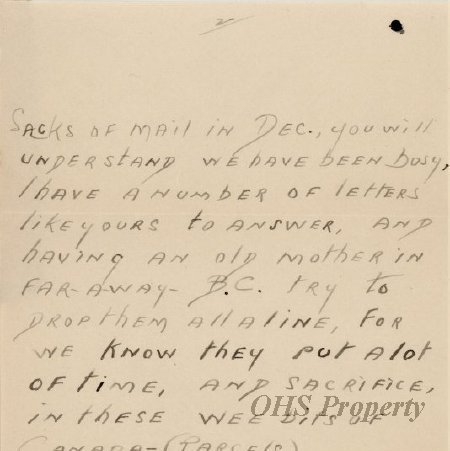 2
Sacks of mail in Dec., you will
understand we have been busy,
I have a number of letters
like yours to answer, and
having an old mother in
far-away- B.C. try to
drop them all a line, for
we know they put a lot
of time, and sacrifice,
in these wee bits of
OHS Property
Canada-(Parcels)